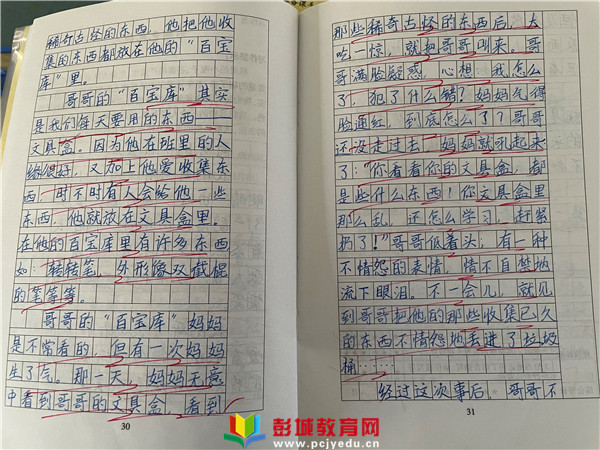 稀奇古怪的东西，他把他收
集的东西都放在他的“百宝
库”里。
哥哥的“百宝库”其实
是我们每天要用的东西——
文具盒。因为他在班里的人
缘很好，又加上他爱收集东
西，时不时有人会给他一些
东西，他就放在文具盒里。
在他的百宝库里有许多东西，
如：转转笔，外形像双截棍
的笔等等。
哥哥的“百宝库”妈妈
是不常看的，但有一次妈妈
生了气。那一天，妈妈无意
中看到哥哥的文具盒，看到
30
那些稀奇古怪的东西后，大
吃一惊，就把哥哥叫来。哥
哥满脸疑惑，心想，我怎么
了，犯了什么错？妈妈气得
脸通红，到底怎么了？哥哥
还没走过去，妈妈就吼起来
了：“你看看你的文具盒，都
是些什么东西！你文具盒里
那么乱，还怎么学习，赶紧
扔了！”哥哥低着头，有一种
不情愿的表情，情不自禁地
流下眼泪。不一会儿，就见
到哥哥把他的那些收集已久
的东西不情愿地丢进了垃圾
桶……
经过这次事后，哥哥不
31
彭城教育网
www.pcjyedu.cn